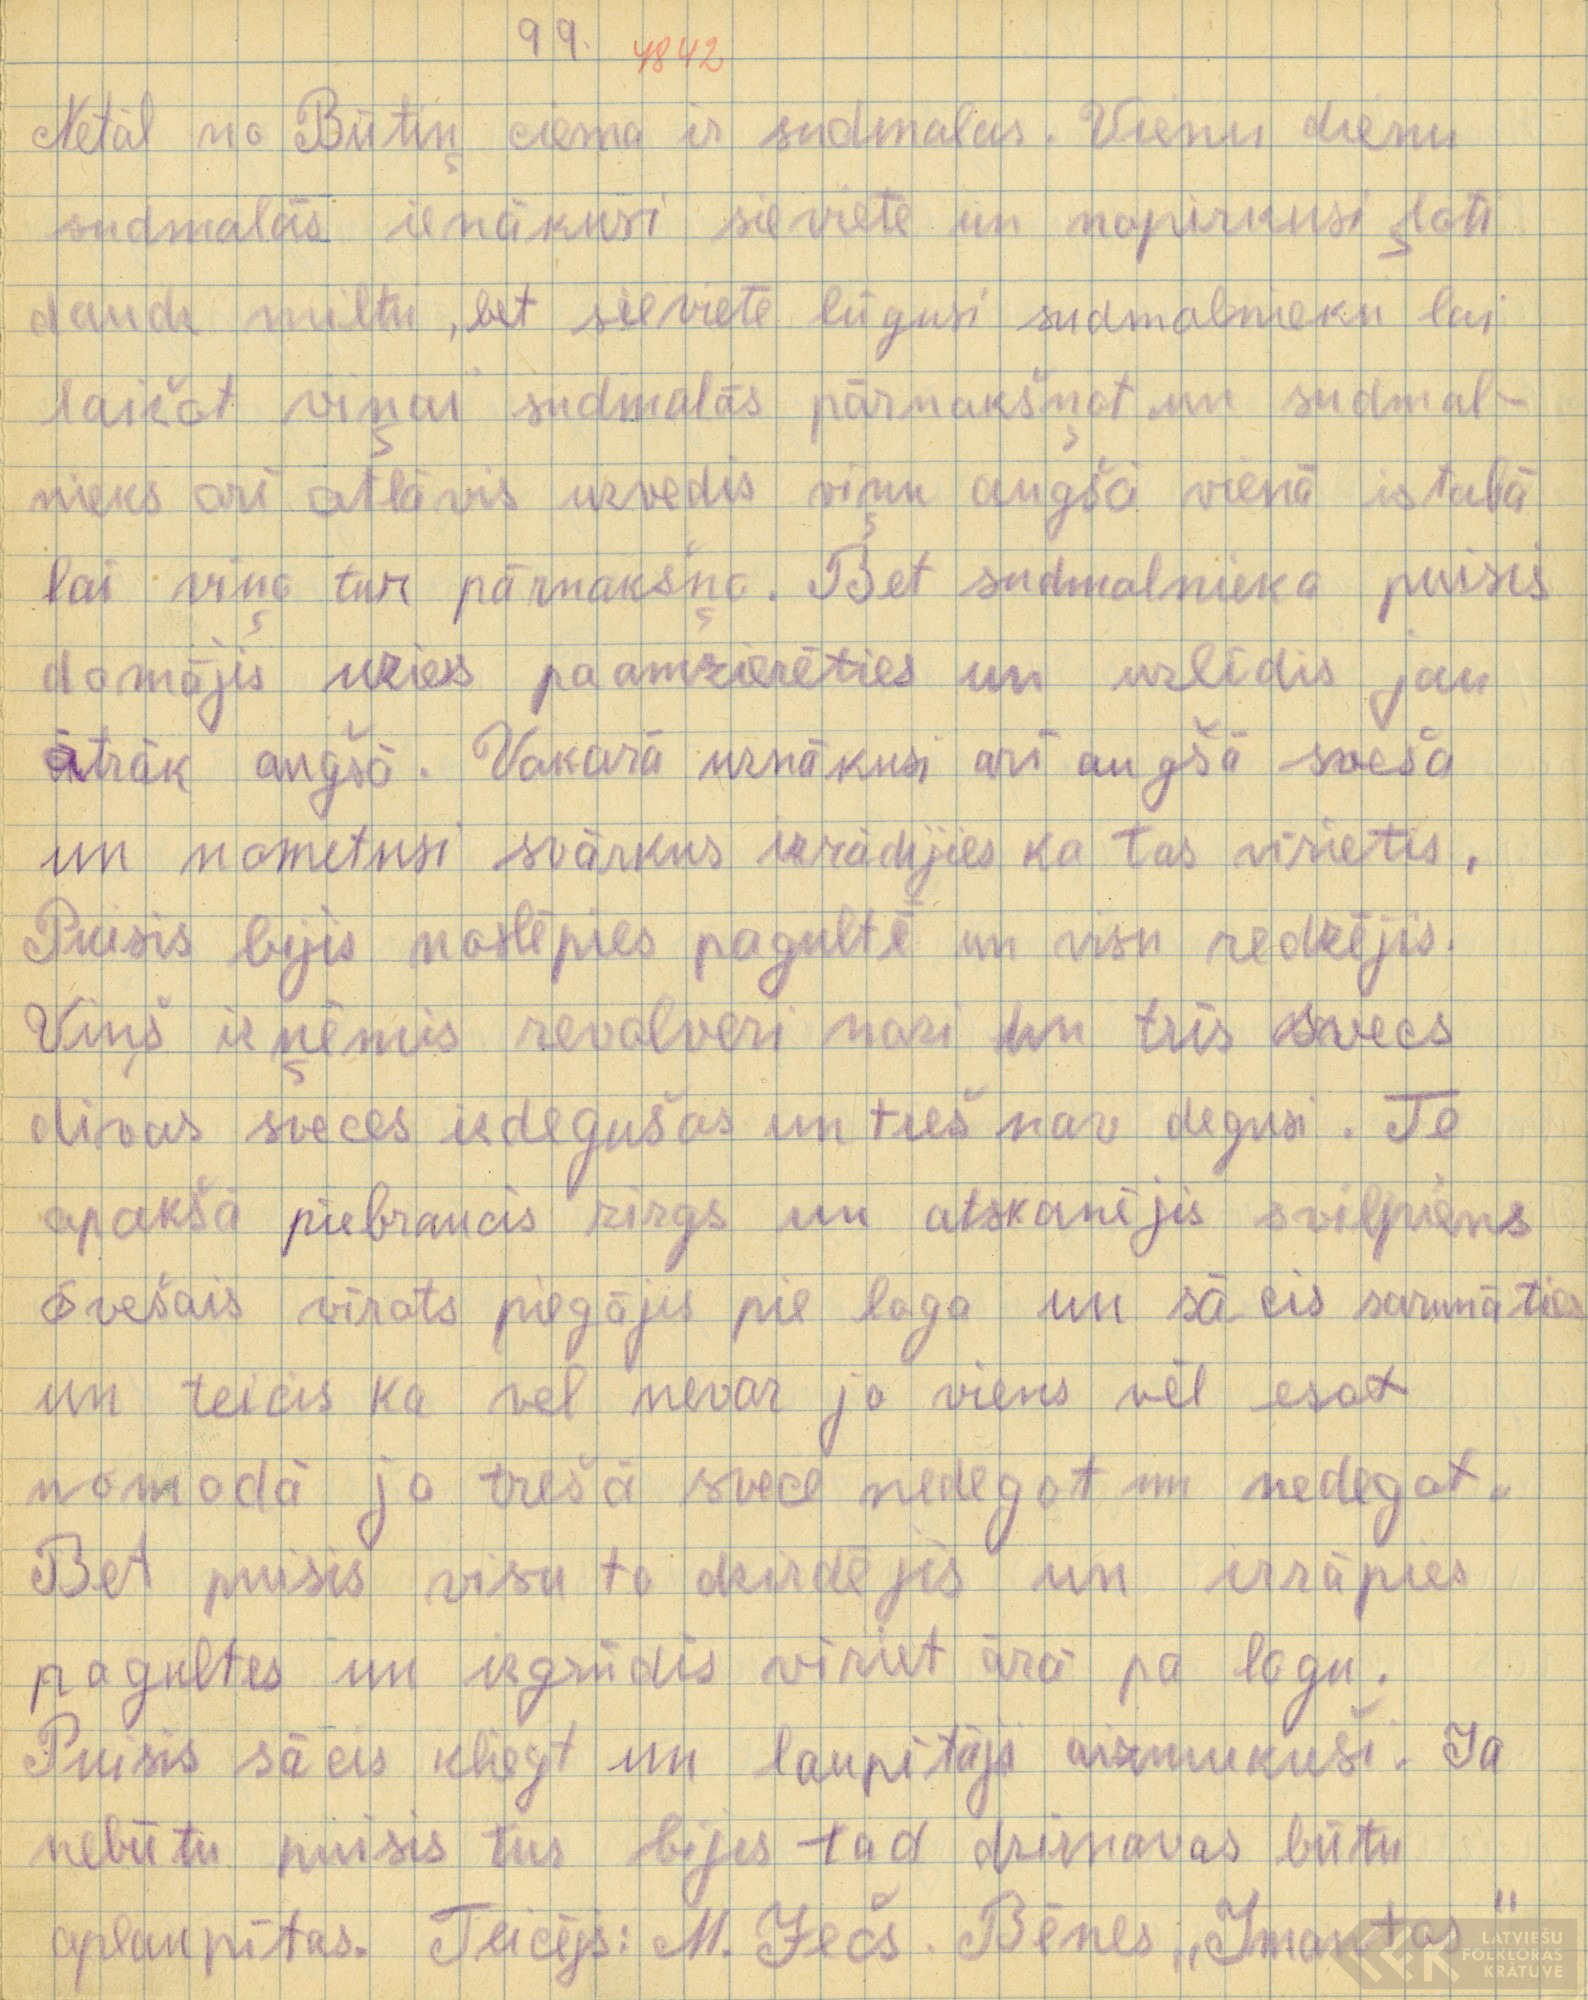 99. 4842
Netāl no Būtiņ ciema ir sudmalas. Vienu dienu
sudmalās ienākusi sieviete un nopirkusi ļoti
daudz miltu, bet sieviete lūgusi sudmalnieku lai
laižot viņai sudmalās pārnakšņot un sudmal-
nieks arī atlāvis uzvedis viņu augšā vienā istabā
lai viņa tur pārnakšņo. Bet sudmalnieka puisis
domājis uzies paamzierēties un uzlīdis jau
ātrāk augšā. Vakarā uznākusi arī augšā svešā
un nometusi svārkus izrādījies ka tas vīrietis,
Puisis bijis noslēpies pagultē un visu redzējis.
Viņš izņēmis revolveri nazi un trīs svecs
divas sveces izdegušas un treš nav degusi. Te
apakšā piebraucis zirgs un atskanējis svilpiens
svešais vīrats piegājis pie loga un sācis sarunāties
un teicis ka vel nevar jo viens vēl esot
nomodā jo trešā svece nedegot un nedegot.
Bet puisis visu to dzirdējis un izrāpies
pagultes un izgrūdis vīriet ārā pa logu.
Puisis sācis kliegt un laupītāji aizmukuši. Ja
nebūtu puisis tur bijis tad dzirnavas būtu
aplaupītas. Teicējs: M. Ječs. Bēnes „Imantas"
LATVIEŠU
FOLKLORAS
KRĀTUVE